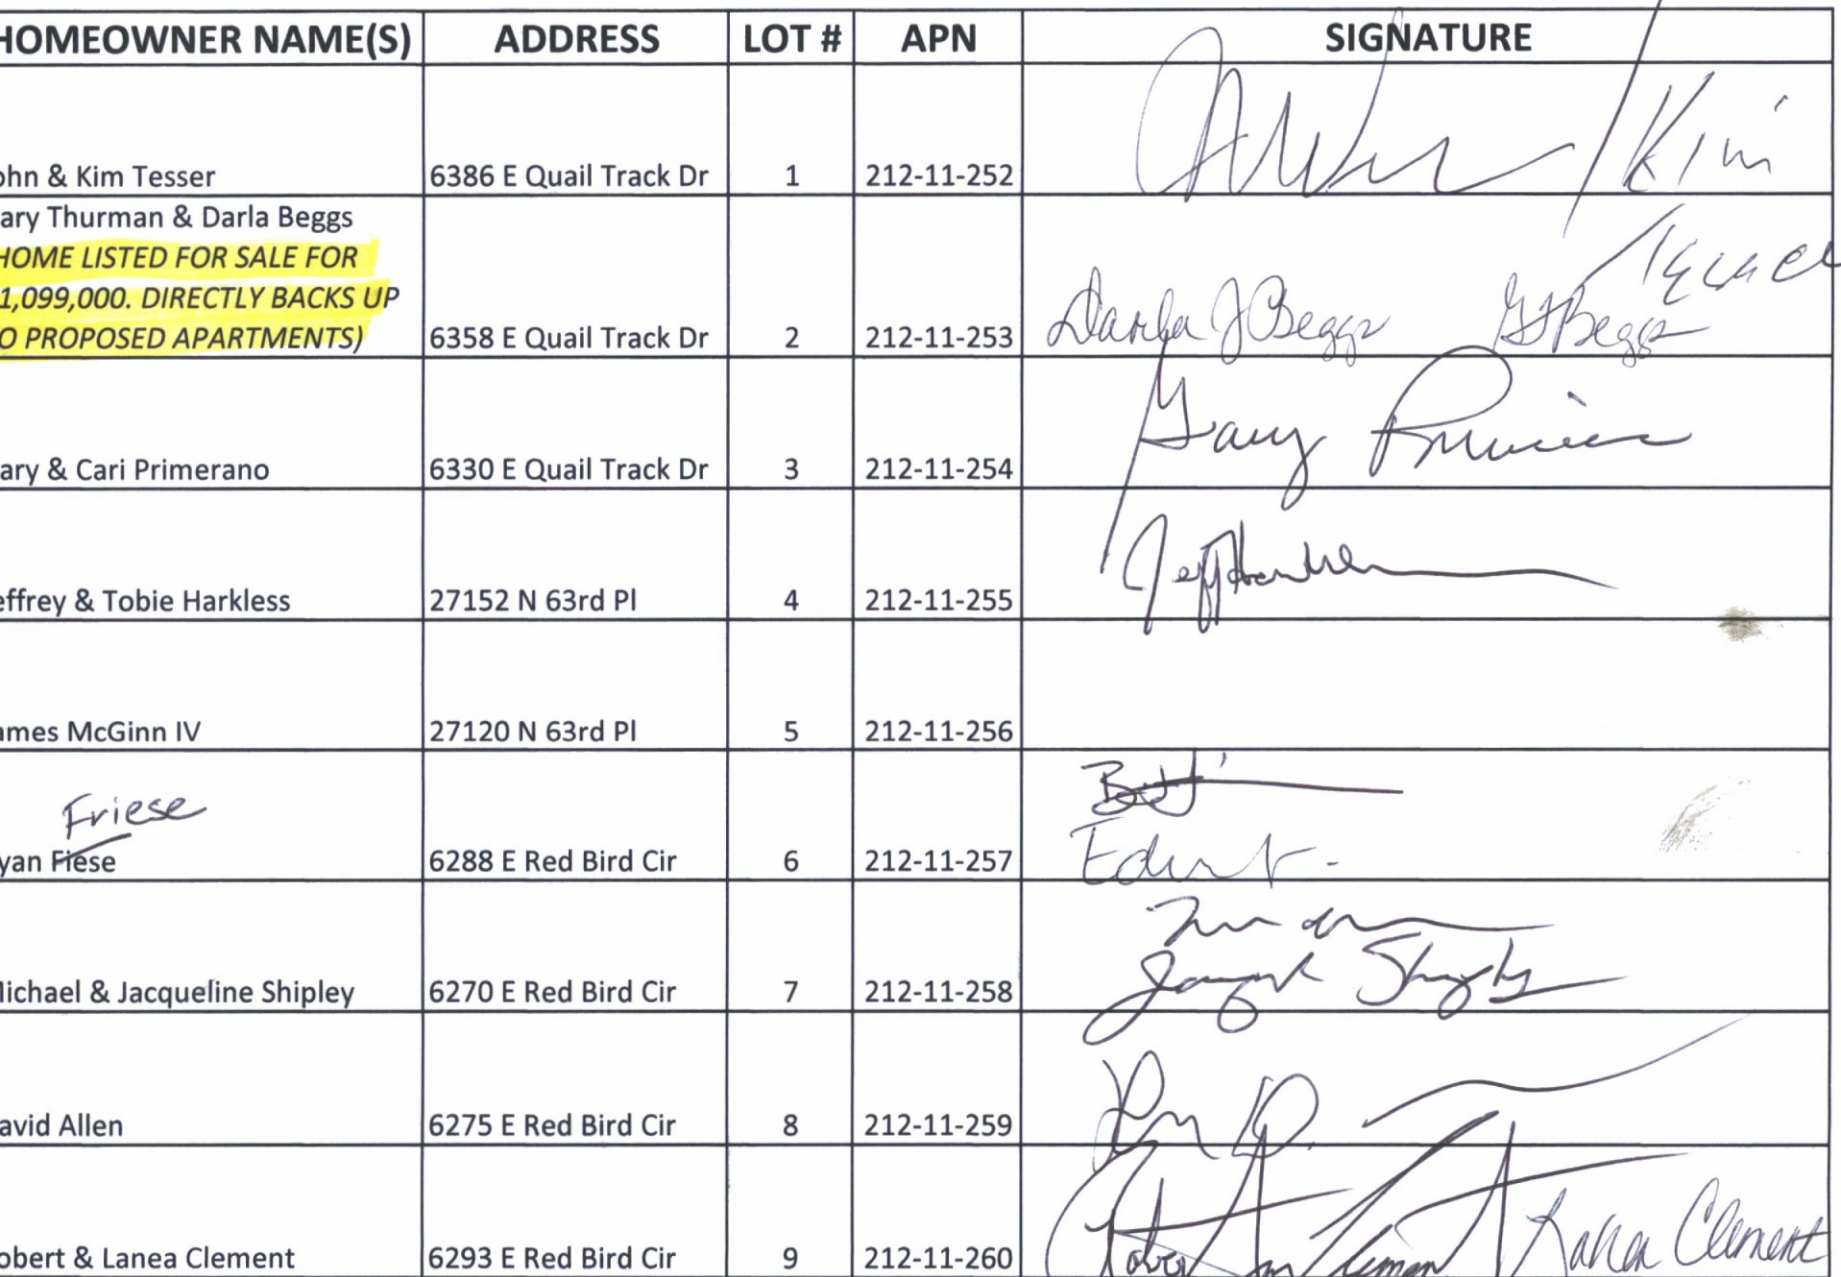 HOMEOWNER NAME(S) ADDRESS LOT # APN SIGNATURE
ohn & Kim Tesser 6386 E Quail Track Dr 1 212-11-252 Kim
ary Thurman & Darla Beggs
HOME LISTED FOR SALE FOR
1,099,000. DIRECTLY BACKS UP
O PROPOSED APARTMENTS) 6358 E Quail Track Dr 2 212-11-253 Darla J Beggs Beggs
ary & Cari Primerano 6330 E Quail Track Dr 3 212-11-254 Gary
effrey & Tobie Harkless 27152 N 63rd Pl 4 212-11-255 Jeff
ames McGinn IV 27120 N 63rd Pl 5 212-11-256
Friese
yan Fiese 6288 E Red Bird Cir 6 212-11-257
lichael & Jacqueline Shipley 6270 E Red Bird Cir 7 212-11-258
avid Allen 6275 E Red Bird Cir 8 212-11-259
obert & Lanea Clement 6293 E Red Bird Cir 9 212-11-260 Lanea Clement